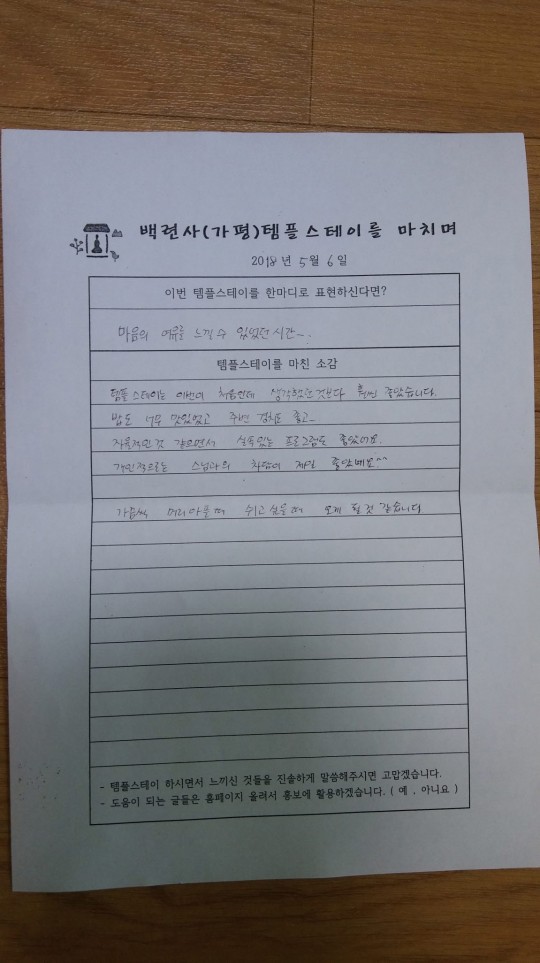 백련사(가평)템플스테이를 마치며
2018년 5월 6일
이번 템플스테이를 한마디로 표현하신다면?
마음의 여유를 느낄 수 있었던 시간~.
템플스테이를 마친 소감
템플 스테이는 이번이 처음인데 생각했던 것보다 훨씬 좋았습니다.
밥도 너무 맛있었고 주변 경치도 좋고~
자율적인것 같으면서 실속있는 프로그램도 좋았어요.
개인적으로는 스님과의 차담이 제일 좋았네요^^
가끔씩 머리아플때 쉬고싶을때 오게 될것 같습니다
- 템플스테이 하시면서 느끼신 것들을 진솔하게 말씀해주시면 고맙겠습니다.
- 도움이 되는 글들은 홈페이지 올려서 홍보에 활용하겠습니다. ( 예 , 아니요 )